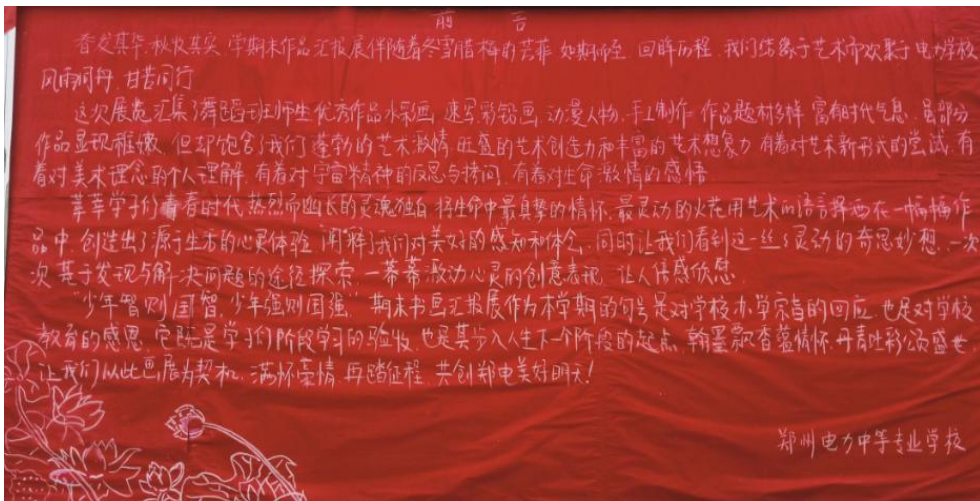 前言
春发其华，秋收其实，学期末作品汇报展伴随着冬雪腊梅的芳菲，如期而至，回眸历程，我们结缘于艺术而欢聚于电力学校
风雨同舟，甘苦同行
这次展览汇集了舞蹈班师生优秀作品水彩画，速写，彩铅画，动漫人物，手工制作，作品题材多样，富有时代气息，虽部分
作品显现稚嫩，但却饱含了我们蓬勃的艺术激情，旺盛的艺术创造力和丰富的艺术想象力，有着对艺术新形式的尝试，有
着对美术理念的个人理解，有着对宇宙精神的反思与拷问，有着对生命激情的感悟
莘莘学子们青春时代，热烈而幽长的灵魂独白，将生命中最真挚的情怀，最灵动的火花用艺术的语言挥洒在一幅幅作
品中，创造出了源于生活的心灵体验，阐释了我们对美好的感知和体会，同时让我们看到这一丝丝灵动的奇思妙想，一次
次基于发现与解决问题的途径探索，一幕幕激动心灵的创意表现，让人倍感欣慰
“少年智则国智，少年强则国强”期末书画汇报展作为本学期的句号是对学校办学宗旨的回应，也是对学校
教育的感恩，它既是学子们阶段学习的验收，也是其步入人生下一个阶段的起点，翰墨飘香蕴情怀，丹青吐彩颂盛世
让我们以此画展为契机，满怀豪情，再踏征程，共创郑电美好明天！
郑州电力中等专业学校